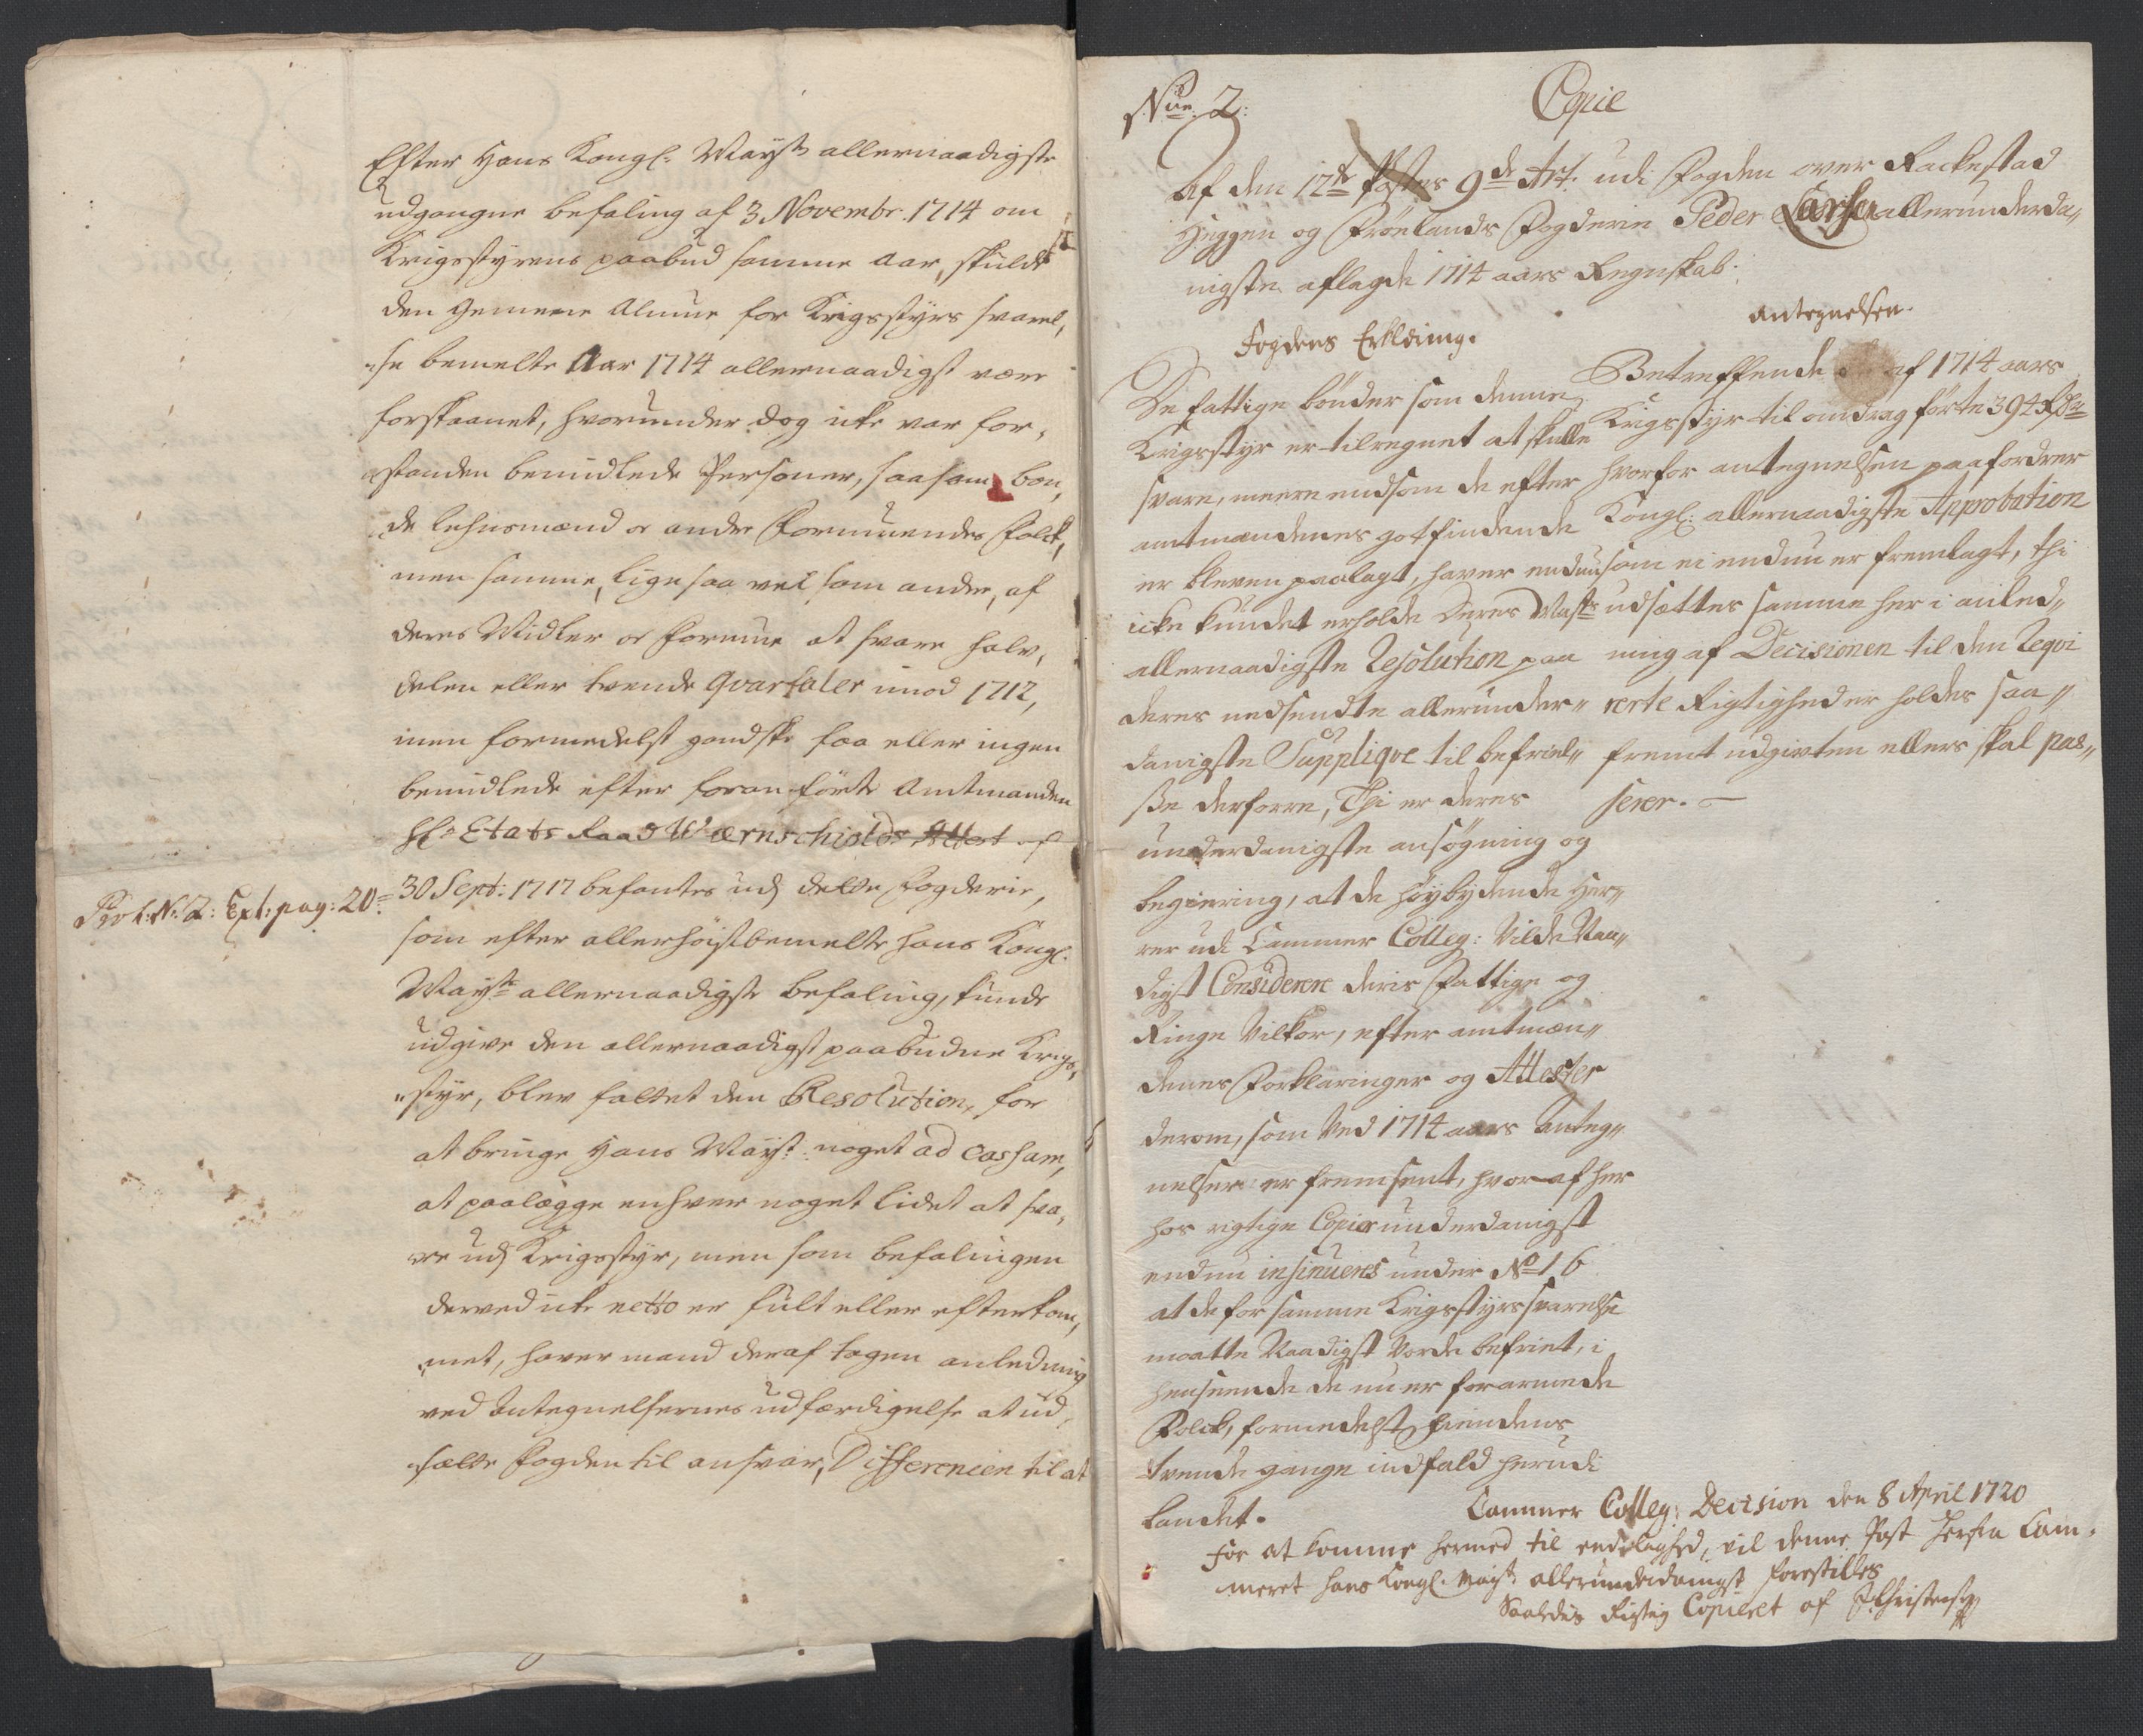 Efter Hans Kongl: Mayts allernaadigste
udgangne befaling af 3 Novembr: 1714 om
Krigsstyrens paabud samme Aar, skulde
den gemeene Almue for Krigsstyrs svarel,
se bemelte Aar 1714 allernaadigst være
forskaanet, hvorunder dog icke var for,
standen bemidlede Personer, saasom bon,
de Lehnsmænd or andre formuendes Folck,
men samme, ligesaa vel som andre, af
deres Midler or formue at svare halv,
delen eller tvende Qvartaler imod 1712,
men formedelst gandske faa eller ingen
bemidlede efter foranførte Amtmanden
Hr: Etats Raad Wærnschiolds Attest af
Prot: No: 2: Ext: pag: 20= 30 Sept: 1717 befantes udj dette fogderie,
som efter allerhøistbemelte hans Kongl:
Mayts allernaadigste befaling, kunde
udgive den allernaadigst paabudne Krigs,
styr, blev fattet den Resolution, for
at bringe Hans Mayt: noget ad Cassam,
at paalægge enhver noget lidet at sva,
re udj Krigsstyr, men som befalingen
derved icke netto er fult eller efterkom,
met, haver mand deraf tagen anledning
ved Antegnelsernes udfærdigelse at ud,
sætte fogden til ansvar, Differencen til at
No: 2: Copie
Af den 12te Postes 9de Art: udi Fogden over Rackestad
Heggen og Frøelands Fogderie Peder Larsen allerunderda„
nigste aflagde 1714 aars Regnskab:
Fogdens Erklæring.
De fattige bönder som denne
Krigsstyr er tilregnet at skulle
svare, meere end som de efter
amtmandenes gotfindende
er bleven paalagt, haver endnu
icke kundet erholde Deres Mayts
allernaadigste Resolution paa
deres nedsendte allerunder„
danigste Supplique til befriel„
sse derforre, Thi er deres
underdanigste ansøgning og
begiering, at de høybydende Her„
rer udi Cammer Colleg: Vilde Naa„
digst Considerere deris Fattige og
Ringe Vilkor, efter amtmæn„
denes Forklaringer og Attester
derom, som Ved 1714 aars Anteg„
nelser er fremsent, hvoraf her
hos rigtige Copier underdanigst
endnu insinueres under No 16
at de for samme Krigsstyrs svarelse
maatte Naadigst Vorde befriet, i
henseende de nu er forarmede
Folck, formedelst fiendens
tvende gange indfald herudi
Landet.
Antegnelsen.
Betreffende de af 1714 aars
Krigsstyr til andrag førte 394 Rdr
hvorfor antegnelsen paafordrer
Kongl: allernaadigste Approbation
som ei endnu er fremlagt, thi
udsættes samme her i anled„
ning af Decisionen til den Reqvi
rerte Rigtighed er holdes saa„
fremt udgivten ellers skal pas„
serer. —
Cammer Colleg: Decision den 8 April 1720
For at komme hermed til endelighed, vil denne Post herfra Cam„
meret hans Kongl: Mayt allerunderdanigst forestilles
Saaledis Rigtig Copieret af P: Christensen